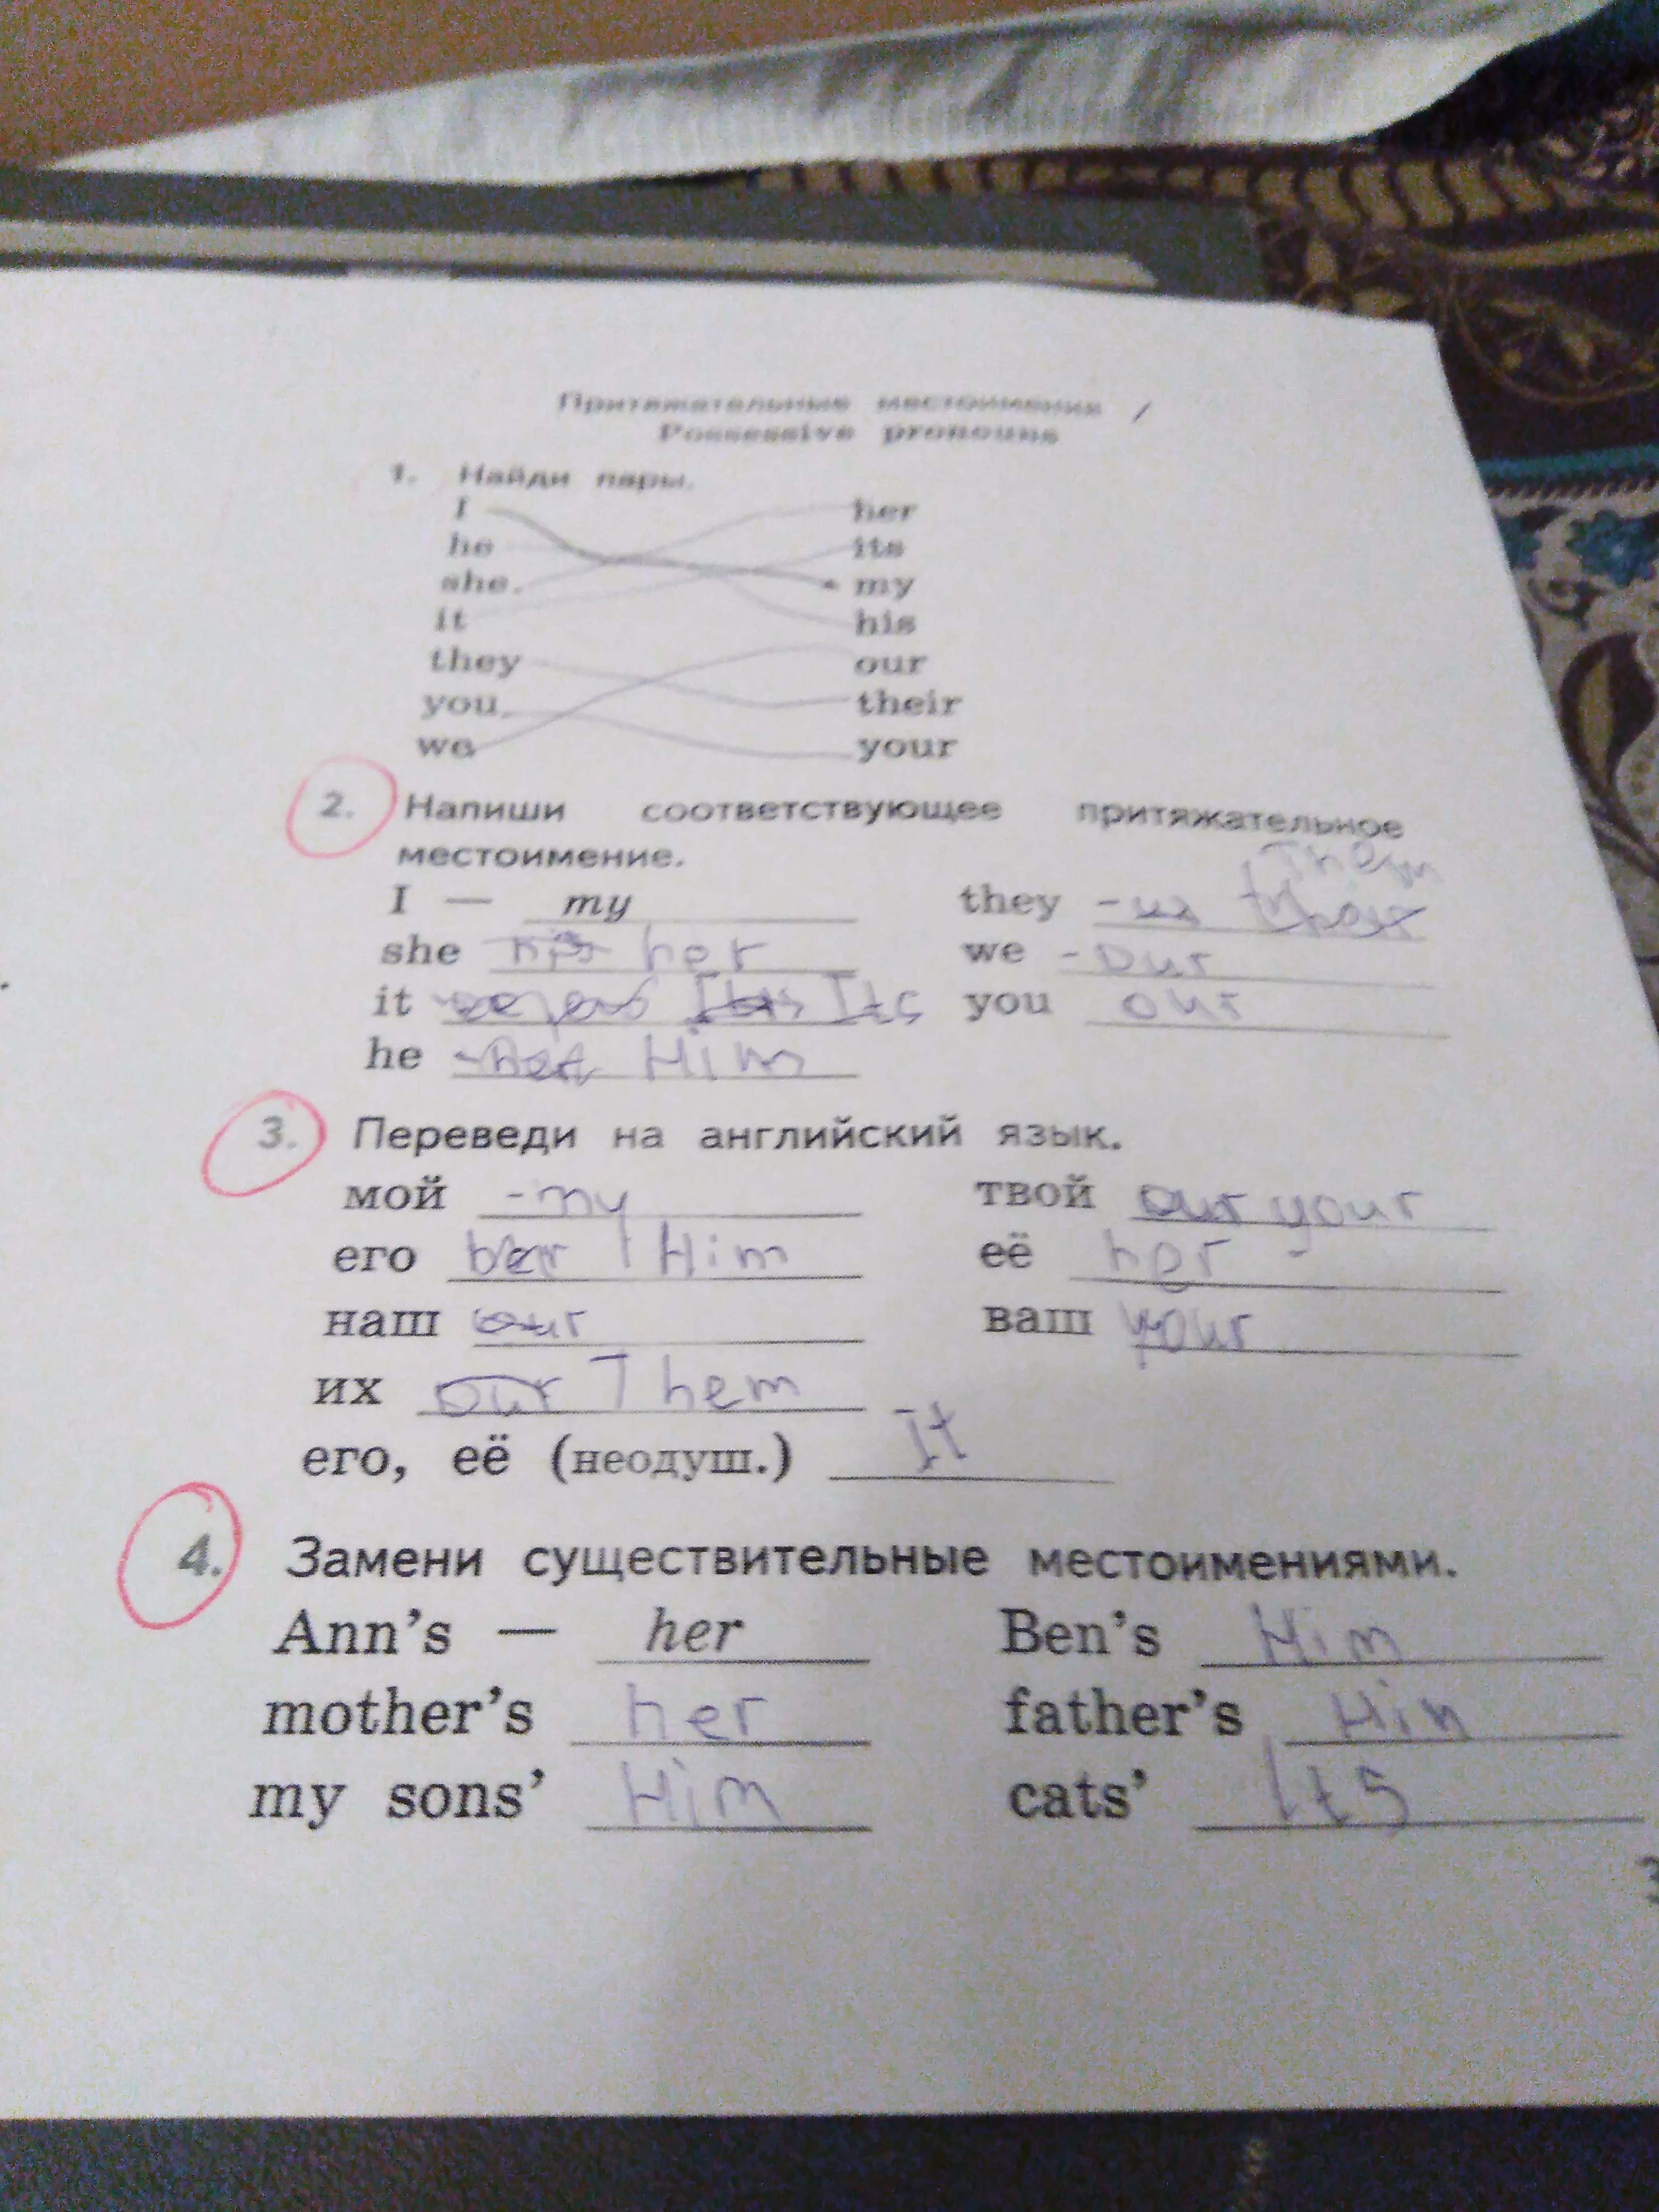 Притяжательные местоимения /
Possessive pronouns
1. Найди пары.
I her
he its
she my
it his
they our
you their
we your
2. Напиши соответствующее притяжательное
местоимение. Them
I — my they -
she his her we - our
it Its you our
he - Him
3. Переведи на английский язык.
мой - my твой our your
его her Him её her -
наш our ваш your
их our Them
его, её (неодуш.) It
4. Замени существительные местоимениями.
Ann's — her Ben's Him
mother's her father's Him
my sons' Him cats' Its
3